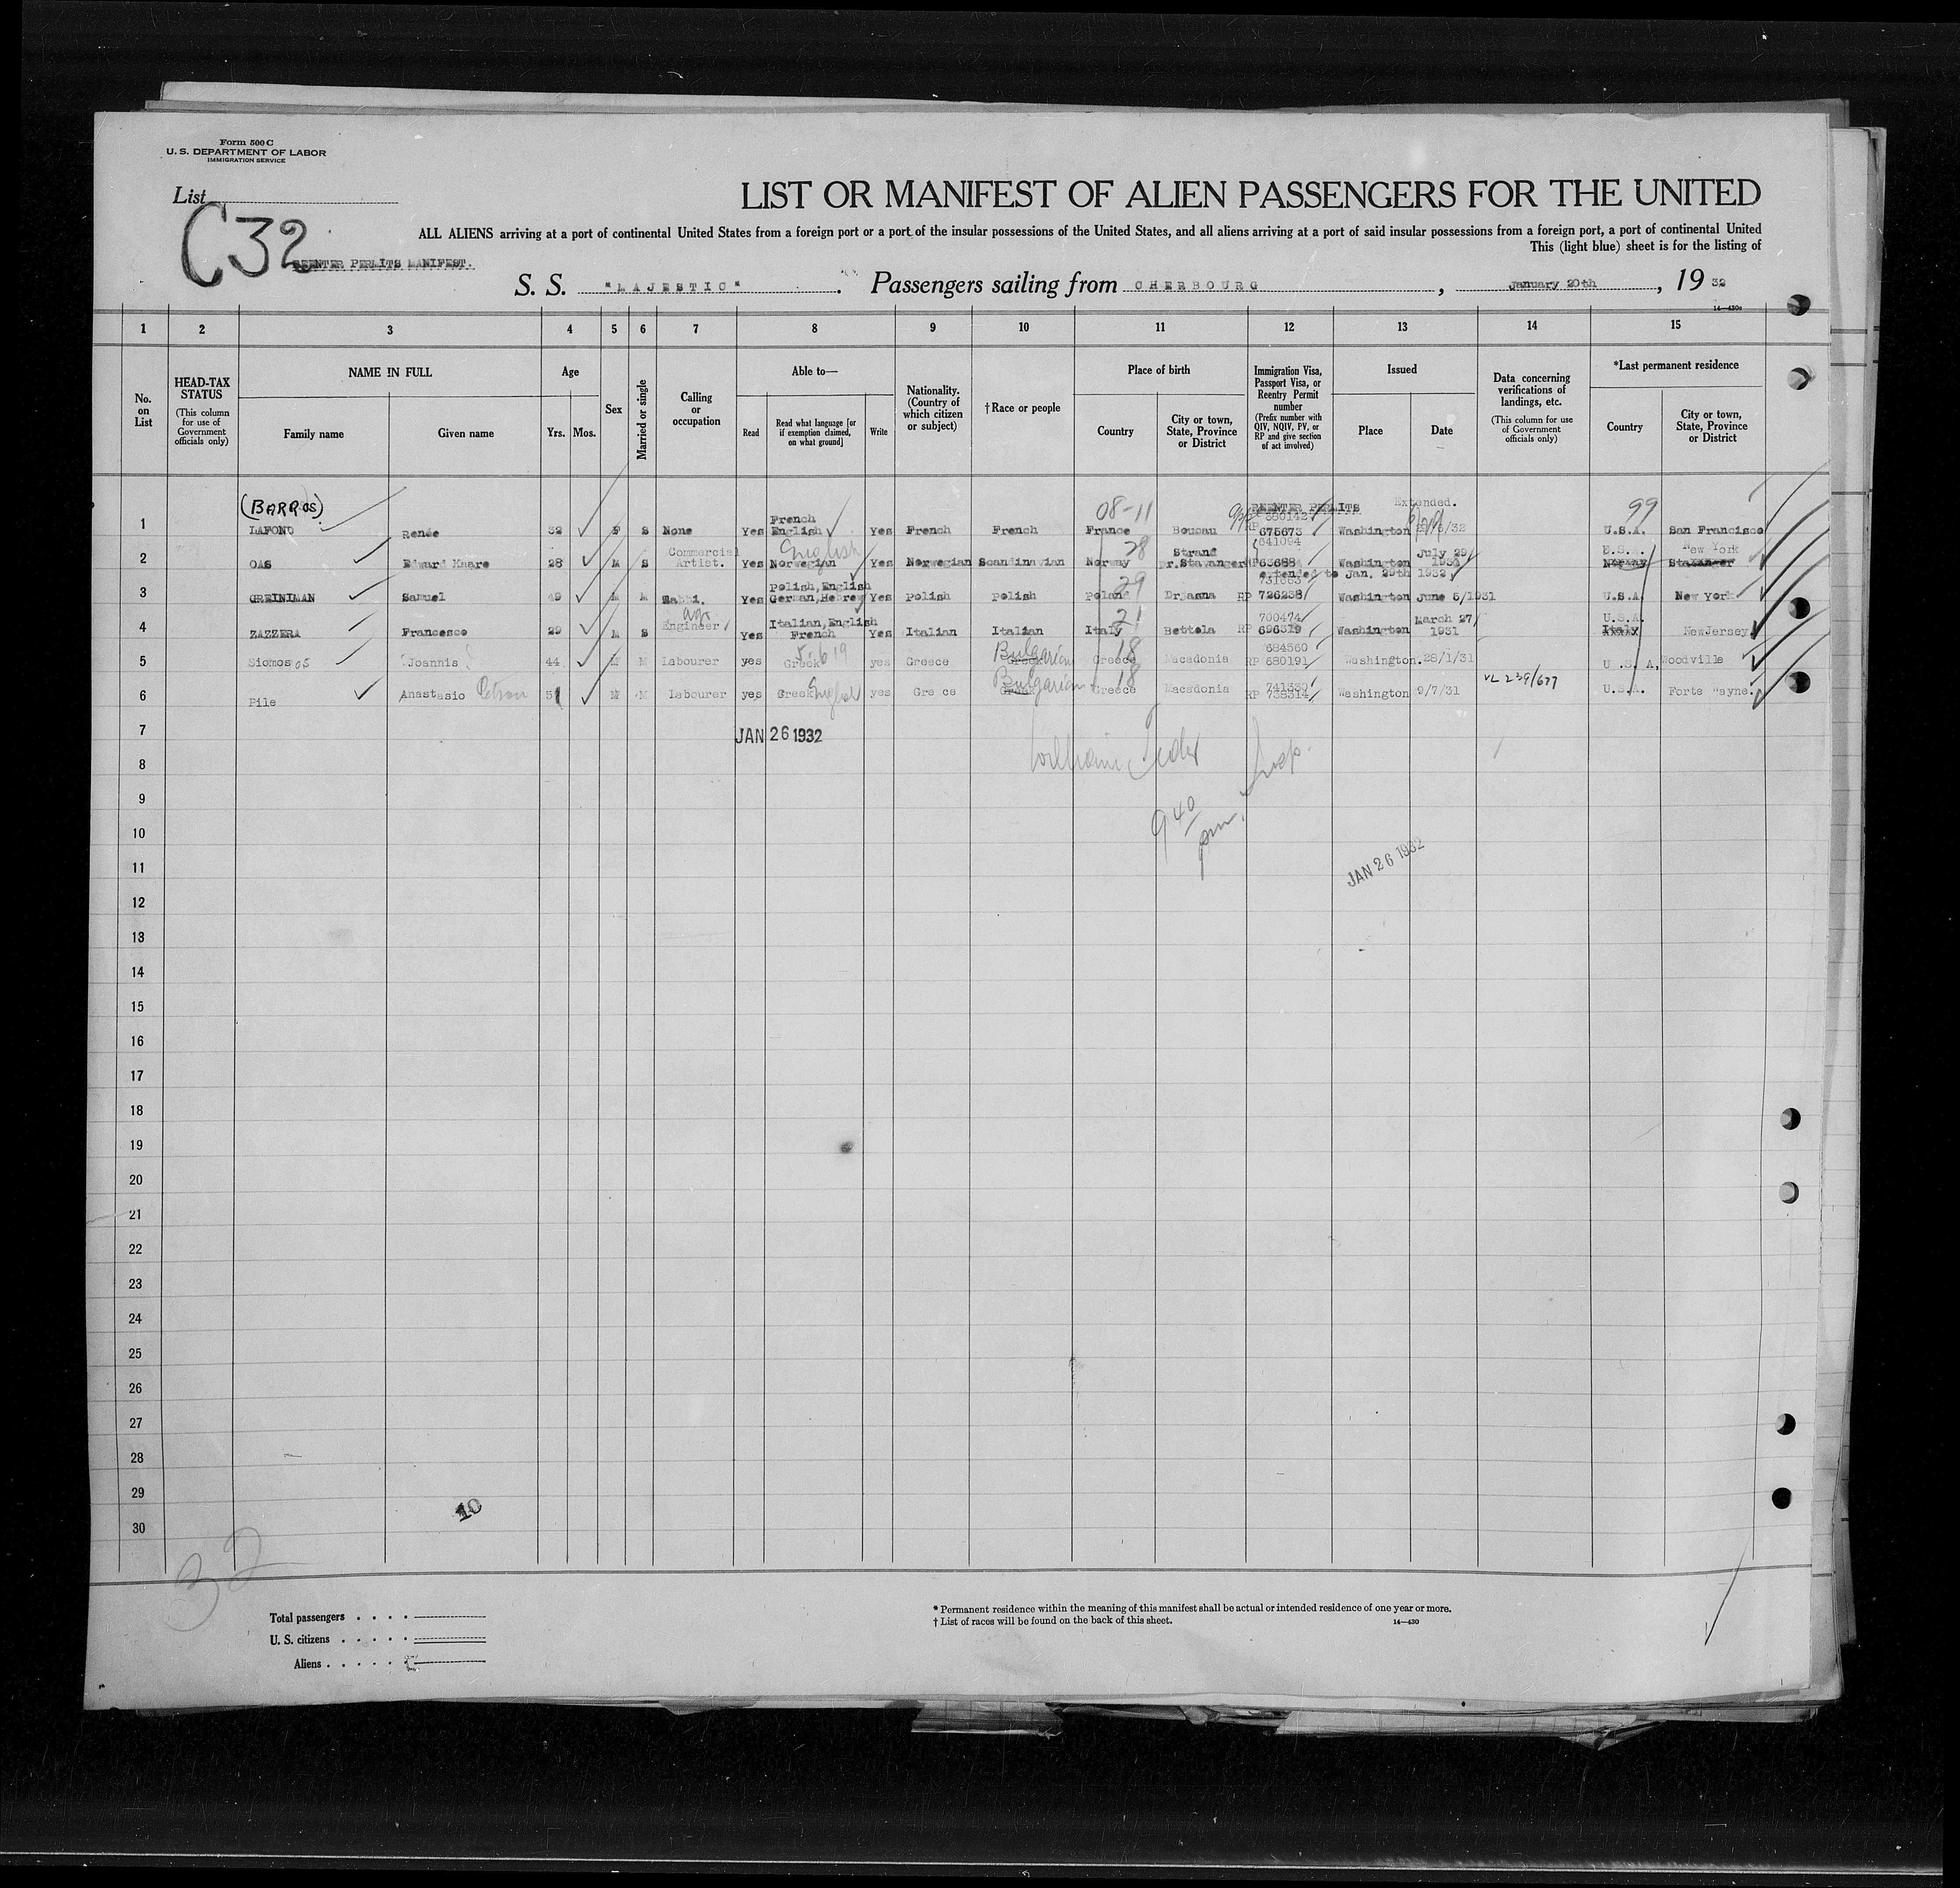 Form 500 C
U. S. DEPARTMENT OF LABOR
IMMIGRATION SERVICE
List
C32
REENTER PERMITS MANIFEST.
LIST OR MANIFEST OF ALIEN PASSENGERS FOR THE UNITED
ALL ALIENS arriving at a port of continental United States from a foreign port or a port of the insular possessions of the United States, and all aliens arriving at a port of said insular possessions from a foreign port, a port of continental United
This (light blue) sheet is for the listing of
S. S. "MAJESTIC" Passengers sailing from CHERBOURG, January 20th, 1932
14—430a
1 2 3 4 5 6 7 8 9 10 11 12 13 14 15
No. on List
HEAD-TAX STATUS (This column for use of Government officials only)
NAME IN FULL
Family name
Given name
Age
Yrs. Mos.
Sex
Married or single
Calling or occupation
Able to—
Read
Read what language [or if exemption claimed, on what ground]
Write
Nationality. (Country of which citizen or subject)
†Race or people
Place of birth
Country
City or town, State, Province or District
Immigration Visa, Passport Visa, or Reentry Permit number (Prefix number with QIV, NQIV, PV, or RP and give section of act involved)
Issued
Place
Date
Data concerning verifications of landings, etc. (This column for use of Government officials only)
*Last permanent residence
Country
City or town, State, Province or District
(BARROS) 08-11 REENTER PERMITS Extended. 99
French 680142
1 LAFOND Renée 32 F S None Yes English Yes French French France Boucau RP 675673 Washington U.S.A. San Francisco
Commercial English 28 Strand 641094 July 29/ U.S.A. New York
2 OAS Edward Kaare 28 M S Artist. Yes Norwegian Yes Norwegian Scandinavian Norway Dr.Stavanger RP 63688 Washington 1931 Norway Stavanger
extended to Jan. 29th 1932
Polish, English 29 731663
3 GREINIMAN Samuel 49 M M Rabbi. Yes German, Hebrew Yes Polish Polish Poland Drjasna RP 726238 Washington June 6/1931 U.S.A. New York
agr Italian, English 21 700474 March 27/ U.S.A.
4 ZAZZERA Francesco 29 M S Engineer Yes French Yes Italian Italian Italy Bettola RP 696319 Washington 1931 Italy New Jersey
5-619 Bulgarian 18 684560
5 Siomos os Joannis 44 M M Labourer yes Greek yes Greece Greek Greece Macedonia RP 680191 Washington. 28/1/31 U.S.A, Woodville
Bulgarian 18 741339 VL 239/677
6 Pile Anastasio Petron 51 M M Labourer yes Greek English yes Greece Greek Greece Macedonia RP 738314 Washington 9/7/31 U.S.A. Forte Wayne.
7
JAN 26 1932
8
9
9 40 pm, Insp.
10
11
JAN 26 1932
12
13
14
15
16
17
18
19
20
21
22
23
24
25
26
27
28
29
10
30
32
Total passengers
U. S. citizens
Aliens
* Permanent residence within the meaning of this manifest shall be actual or intended residence of one year or more.
† List of races will be found on the back of this sheet.
14—430